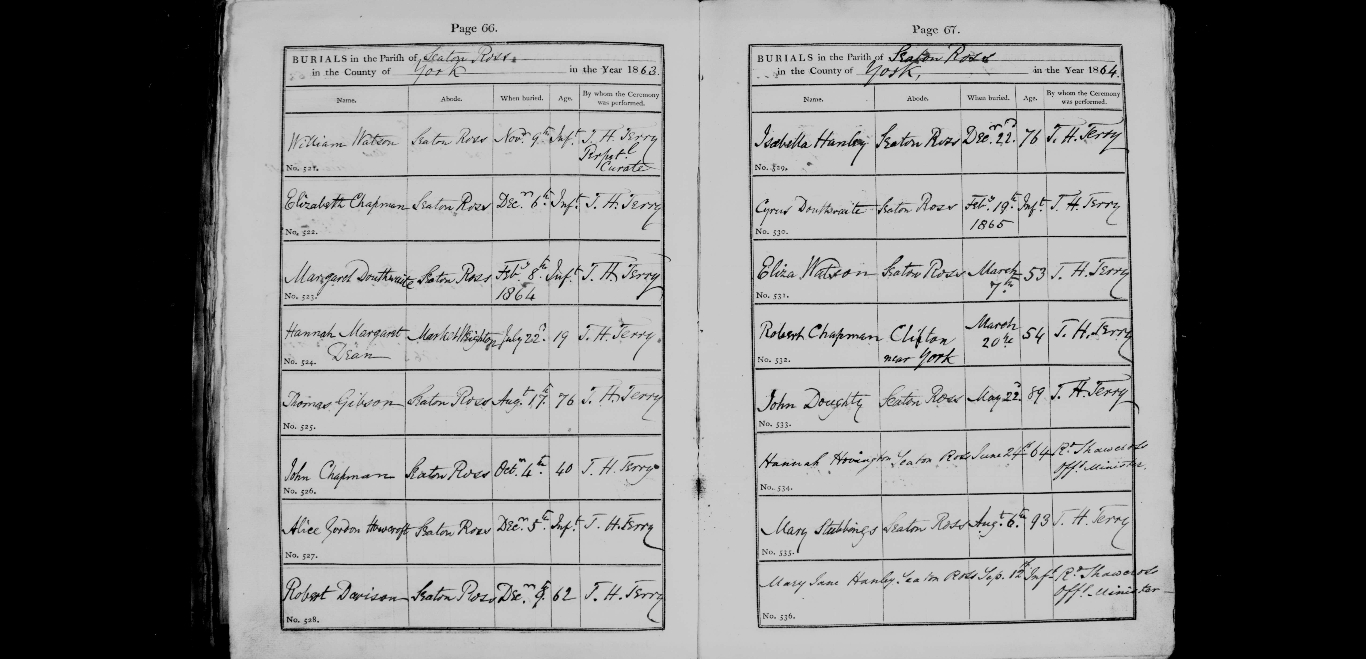 Page 66.
BURIALS in the Parish of Seaton Ross
in the County of York in the Year 1863.
Name. Abode. When buried. Age. By whom the Ceremony was performed.
William Watson Seaton Ross Novr. 9th Inft. T. H. Terry
Perpetl.
Curate
No. 521.
Elizabeth Chapman Seaton Ross Decr. 6th Inft. T. H. Terry
No. 522.
Margaret Douthwaite Seaton Ross Feby. 8th Inft. T. H. Terry
No. 523. 1864
Hannah Margaret Market Weighton July 22d. 19 T. H. Terry.
No. 524. Dean
Thomas Gibson Seaton Ross Augt. 17th. 76 T. H. Terry
No. 525.
John Chapman Seaton Ross Octr. 4th. 40 T. H. Terry
No. 526.
Alice Gordon Howcroft Seaton Ross Decr. 5th. Inft. T. H. Terry
No. 527.
Robert Davison Seaton Ross Decr. 9. 62 T. H. Terry
No. 528.
Page 67.
BURIALS in the Parish of Seaton Ross
in the County of York, in the Year 1864.
Name. Abode. When buried. Age. By whom the Ceremony was performed.
Isabella Hanley Seaton Ross Decr. 22d. 76 T. H. Terry
No. 529.
Cyrus Douthwaite Seaton Ross Feby. 19th. Inft. T. H. Terry
No. 530. 1865
Eliza Watson Seaton Ross March 53 T. H. Terry
No. 531. 7th
Robert Chapman Clifton March 54 T. H. Terry
20th
No. 532. near York
John Doughty Seaton Ross May 22d 89 T. H. Terry
No. 533.
Hannah Seaton Ross June 64 Rd.
Offg. Minister
No. 534.
Mary Stubbings Seaton Ross Augt. 6th. 93 T. H. Terry
No. 535.
Mary Jane Hanley Seaton Ross Sep. 12th Inft. Rd.
Offg. Minister
No. 536.